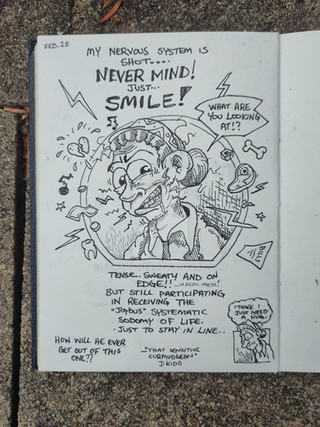 FEB. 25
MY NERVOUS SYSTEM IS
SHOT....
NEVER MIND!
JUST...
SMILE!
WHAT ARE
YOU LOOKING
AT!?
BILLS
TENSE.. SWEATY AND ON
EDGE!! ...A REAL MESS!
BUT STILL PARTICIPATING
IN RECEIVING THE
"JOYOUS" SYSTEMATIC
SODOMY OF LIFE.
JUST TO STAY IN LINE..
I THINK I
JUST NEED
A HUG.
HOW WILL HE EVER
GET OUT OF THIS
ONE??
"THAT SENSITIVE
CURMUDGEON"
J. KIDD